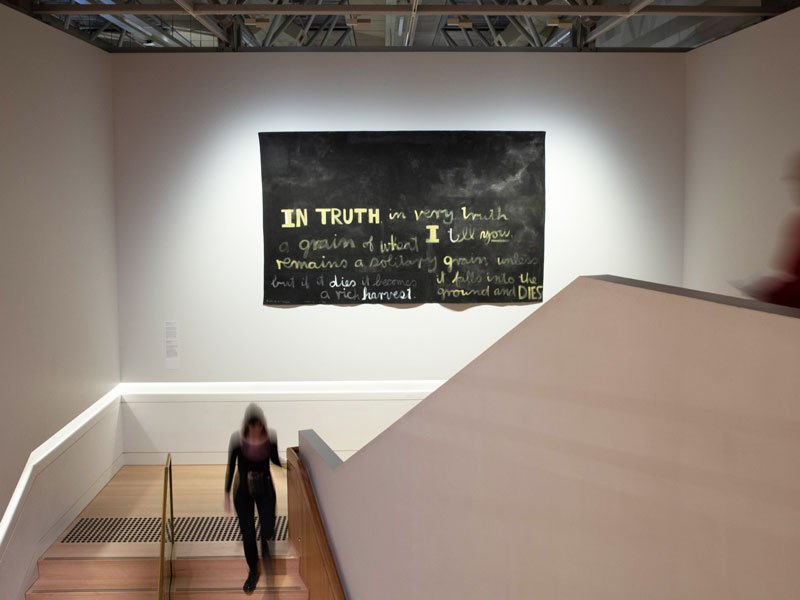 IN TRUTH in very truth
I tell you.
a grain of wheat
remains a solitary grain unless
it falls into the
ground and DIES
but if it dies it becomes
a rich harvest.